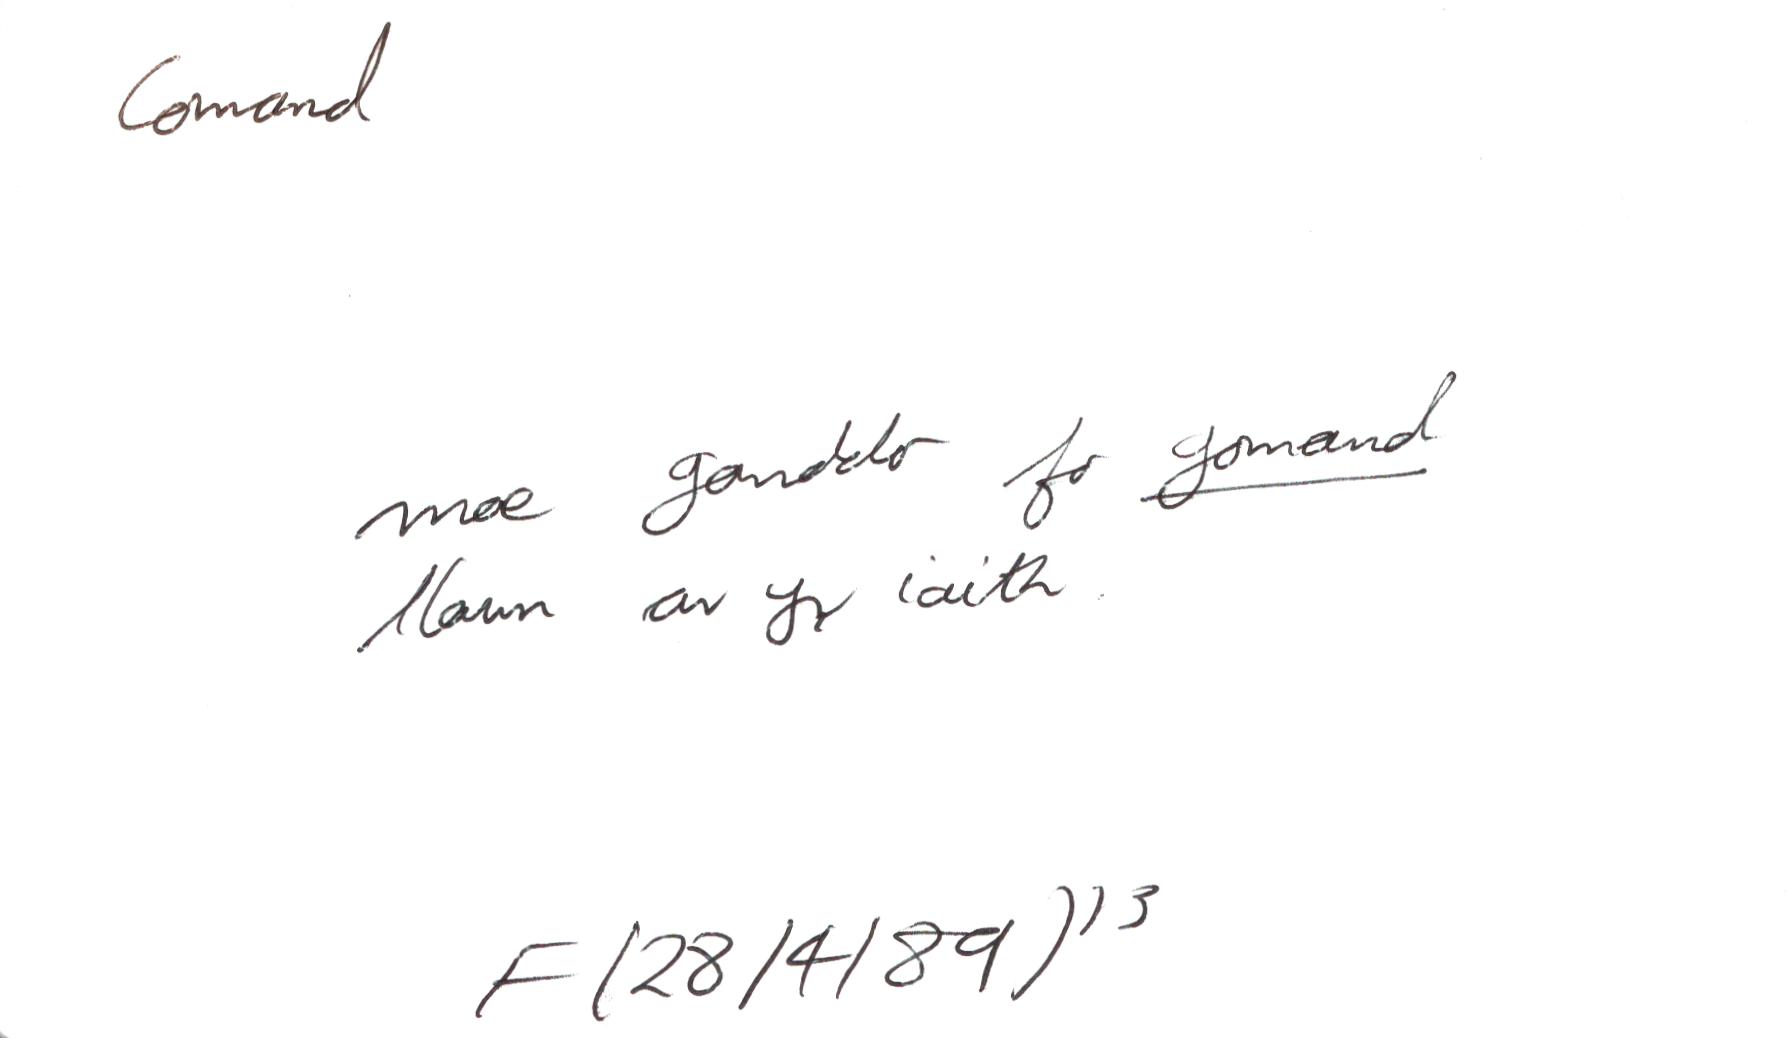 Comand
mae ganddo fo gomand
llawn ar yr iaith.
F(28/4/89)13